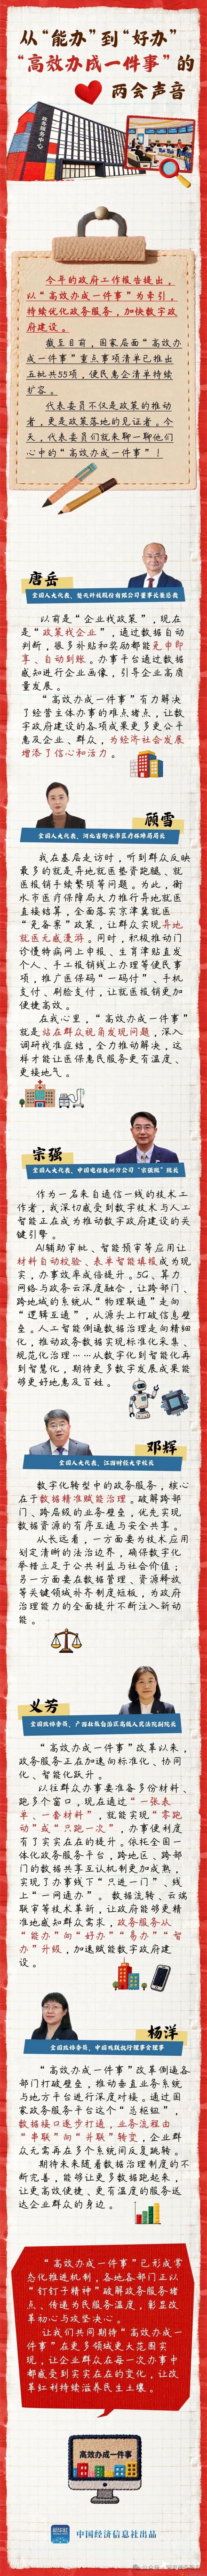 从“能办”到“好办”
“高效办成一件事”的
两会声音
政务服务中心
今年的政府工作报告提出，
以“高效办成一件事”为牵引，
持续优化政务服务，加快数字政
府建设。
截至目前，国家层面“高效办
成一件事”重点事项清单已推出
五批共55项，便民惠企清单持续
扩容。
代表委员不仅是政策的推动
者，更是政策落地的见证者。今
天，代表委员们就来聊一聊他们
心中的“高效办成一件事”！
唐岳
以前是“企业找政策”，现在
是“政策找企业”，通过数据自动
判断，很多补贴和奖励都能免申即
享、自动到账。办事平台通过数据
感知进行企业画像，引导企业高质
量发展。
“高效办成一件事”有力解决
了经营主体办事的难点堵点，让数
字政府建设的各项成果更多更公平
惠及企业、群众，为经济社会发展
增添了信心和活力。
顾雪
全国人大代表、河北省衡水市医疗保障局局长
我在基层走访时，听到群众反映
最多的就是异地就医垫资跑腿、就
医报销手续繁琐等问题。为此，衡
水市医疗保障局大力推行异地就医
直接结算，全面落实京津冀就医
“免备案”政策，让群众实现异地
就医无感漫游。同时，积极推动门
诊慢特病网上申报、生育津贴直发
个人、手工报销线上办理等便民事
项，推广医保码“一码付”、手机
支付、刷脸支付，让就医报销更加
便捷高效。
在我心里，“高效办成一件事”
就是站在群众视角发现问题，深入
调研找准症结，全力推动解决，这
样才能让医保惠民服务更有温度、
更接地气。
宗强
全国人大代表、中国电信杭州分公司“宗强班”班长
作为一名来自通信一线的技术工
作者，我深切感受到数字技术与人工
智能正在成为推动数字政府建设的关
键引擎。
AI辅助审批、智能预审等应用让
材料自动校验、表单智能填报成为现
实，办事效率成倍提升。5G、算力
网络与政务云深度融合，让跨部门、
跨地域的系统从“物理联通”走向
“逻辑互通”，从源头上打破信息壁
垒。人工智能倒逼数据治理走向精细
化，推动政务数据实现标准化采集、
规范化治理……从数字化到智能化再
到智慧化，期待更多数字发展成果能
够更好地惠及百姓。
邓辉
全国人大代表、江西财经大学校长
数字化转型中的政务服务，核心
在于数据精准赋能治理。破解跨部
门、跨层级的业务壁垒，优先实现
数据资源的有序互通与安全共享。
从长远看，一方面要为技术应用
划定清晰的法治边界，确保数字化
举措立足于公共利益与社会价值；
另一方面要在数据管理、资源释放
等关键领域补齐制度短板，为政府
治理能力的全面提升不断注入新动
能。
义芳
全国政协委员、广西壮族自治区高级人民法院副院长
“高效办成一件事”改革以来，
政务服务正在加速向标准化、协同
化、智能化跃升。
以往群众办事要准备多份材料、
跑多个窗口，现在通过“一张表
单、一套材料”，就能实现“零跑
动”或“只跑一次”，办事便利度
有了实实在在的提升。依托全国一
体化政务服务平台，跨地区、跨部
门的数据共享互认机制更加成熟，
实现了办事线下“只进一门”、线
上“一网通办”。数据流转、云端
联审等技术革新，让政府能够更精
准地感知群众需求，政务服务从
“能办”向“好办”“易办”“智
办”升级，加速赋能数字政府建
设。
杨洋
全国政协委员、中国残联执行理事会理事
“高效办成一件事”改革倒逼各
部门打破壁垒，推动垂直业务系统
与地方平台进行深度对接。通过国
家政务服务平台这个“总枢纽”，
数据接口逐步打通，业务流程由
“串联”向“并联”转变，企业群
众无需再在多个系统间反复跳转。
期待未来随着数据治理制度的不
断完善，能够让更多数据跑起来，
让更高效便捷、更有温度的服务送
达企业群众的身边。
“高效办成一件事”已形成常
态化推进机制，各地各部门正以
“钉钉子精神”破解政务服务堵
点、传递为民服务温度，彰显改
革初心与攻坚决心。
让我们共同期待“高效办成一
件事”在更多领域更大范围实
现，让企业群众在每一次办事中
都感受到实实在在的变化，让改
革红利持续滋养民生土壤。
高效办成一件事
中国经济信息社出品